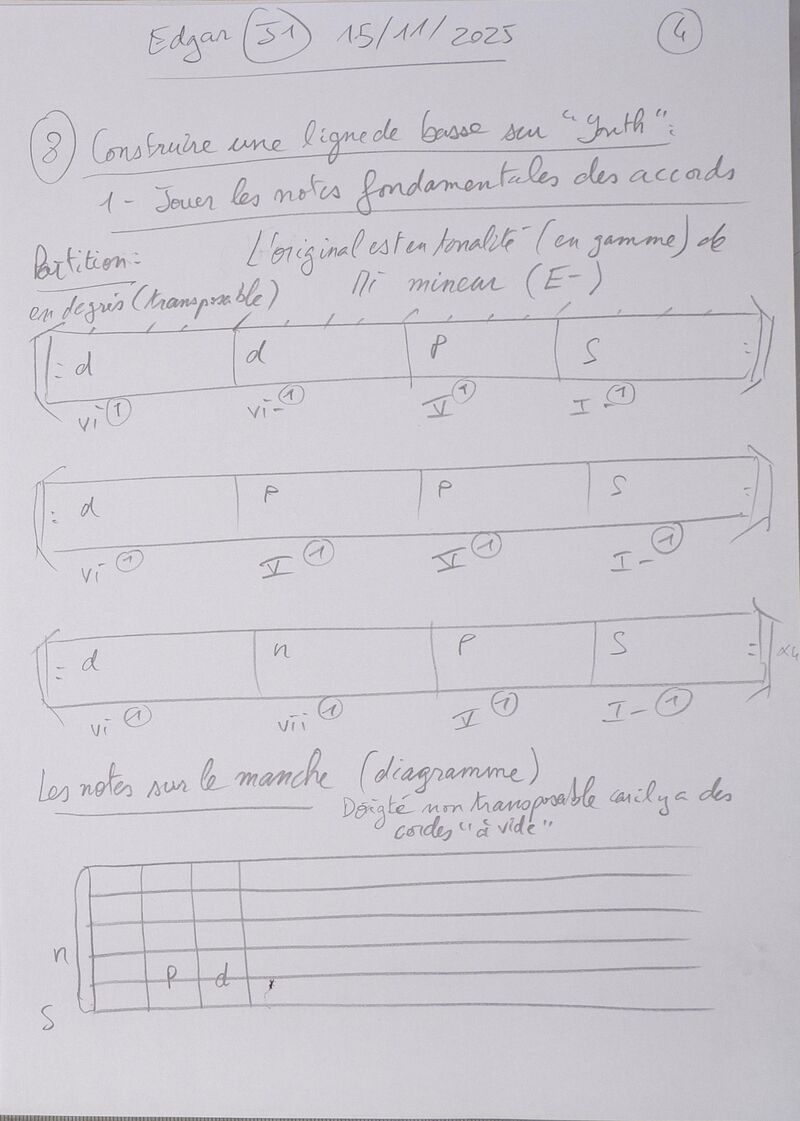 Edgar S1 15/11/2025 4
8 Construire une ligne de basse sur "Youth":
1- Jouer les notes fondamentales des accords
Partition: L'original est en tonalité (en gamme) de
en degrés (transposable) Mi mineur (E-)
d d P S
vi 1 vi- 1 V 1 I- 1
d P P S
vi 1 V 1 V 1 I- 1
d n P S x4
vi 1 vii 1 V 1 I- 1
Les notes sur le manche (diagramme)
Doigté non transposable car il y a des
cordes "à vide"
n
P d
S